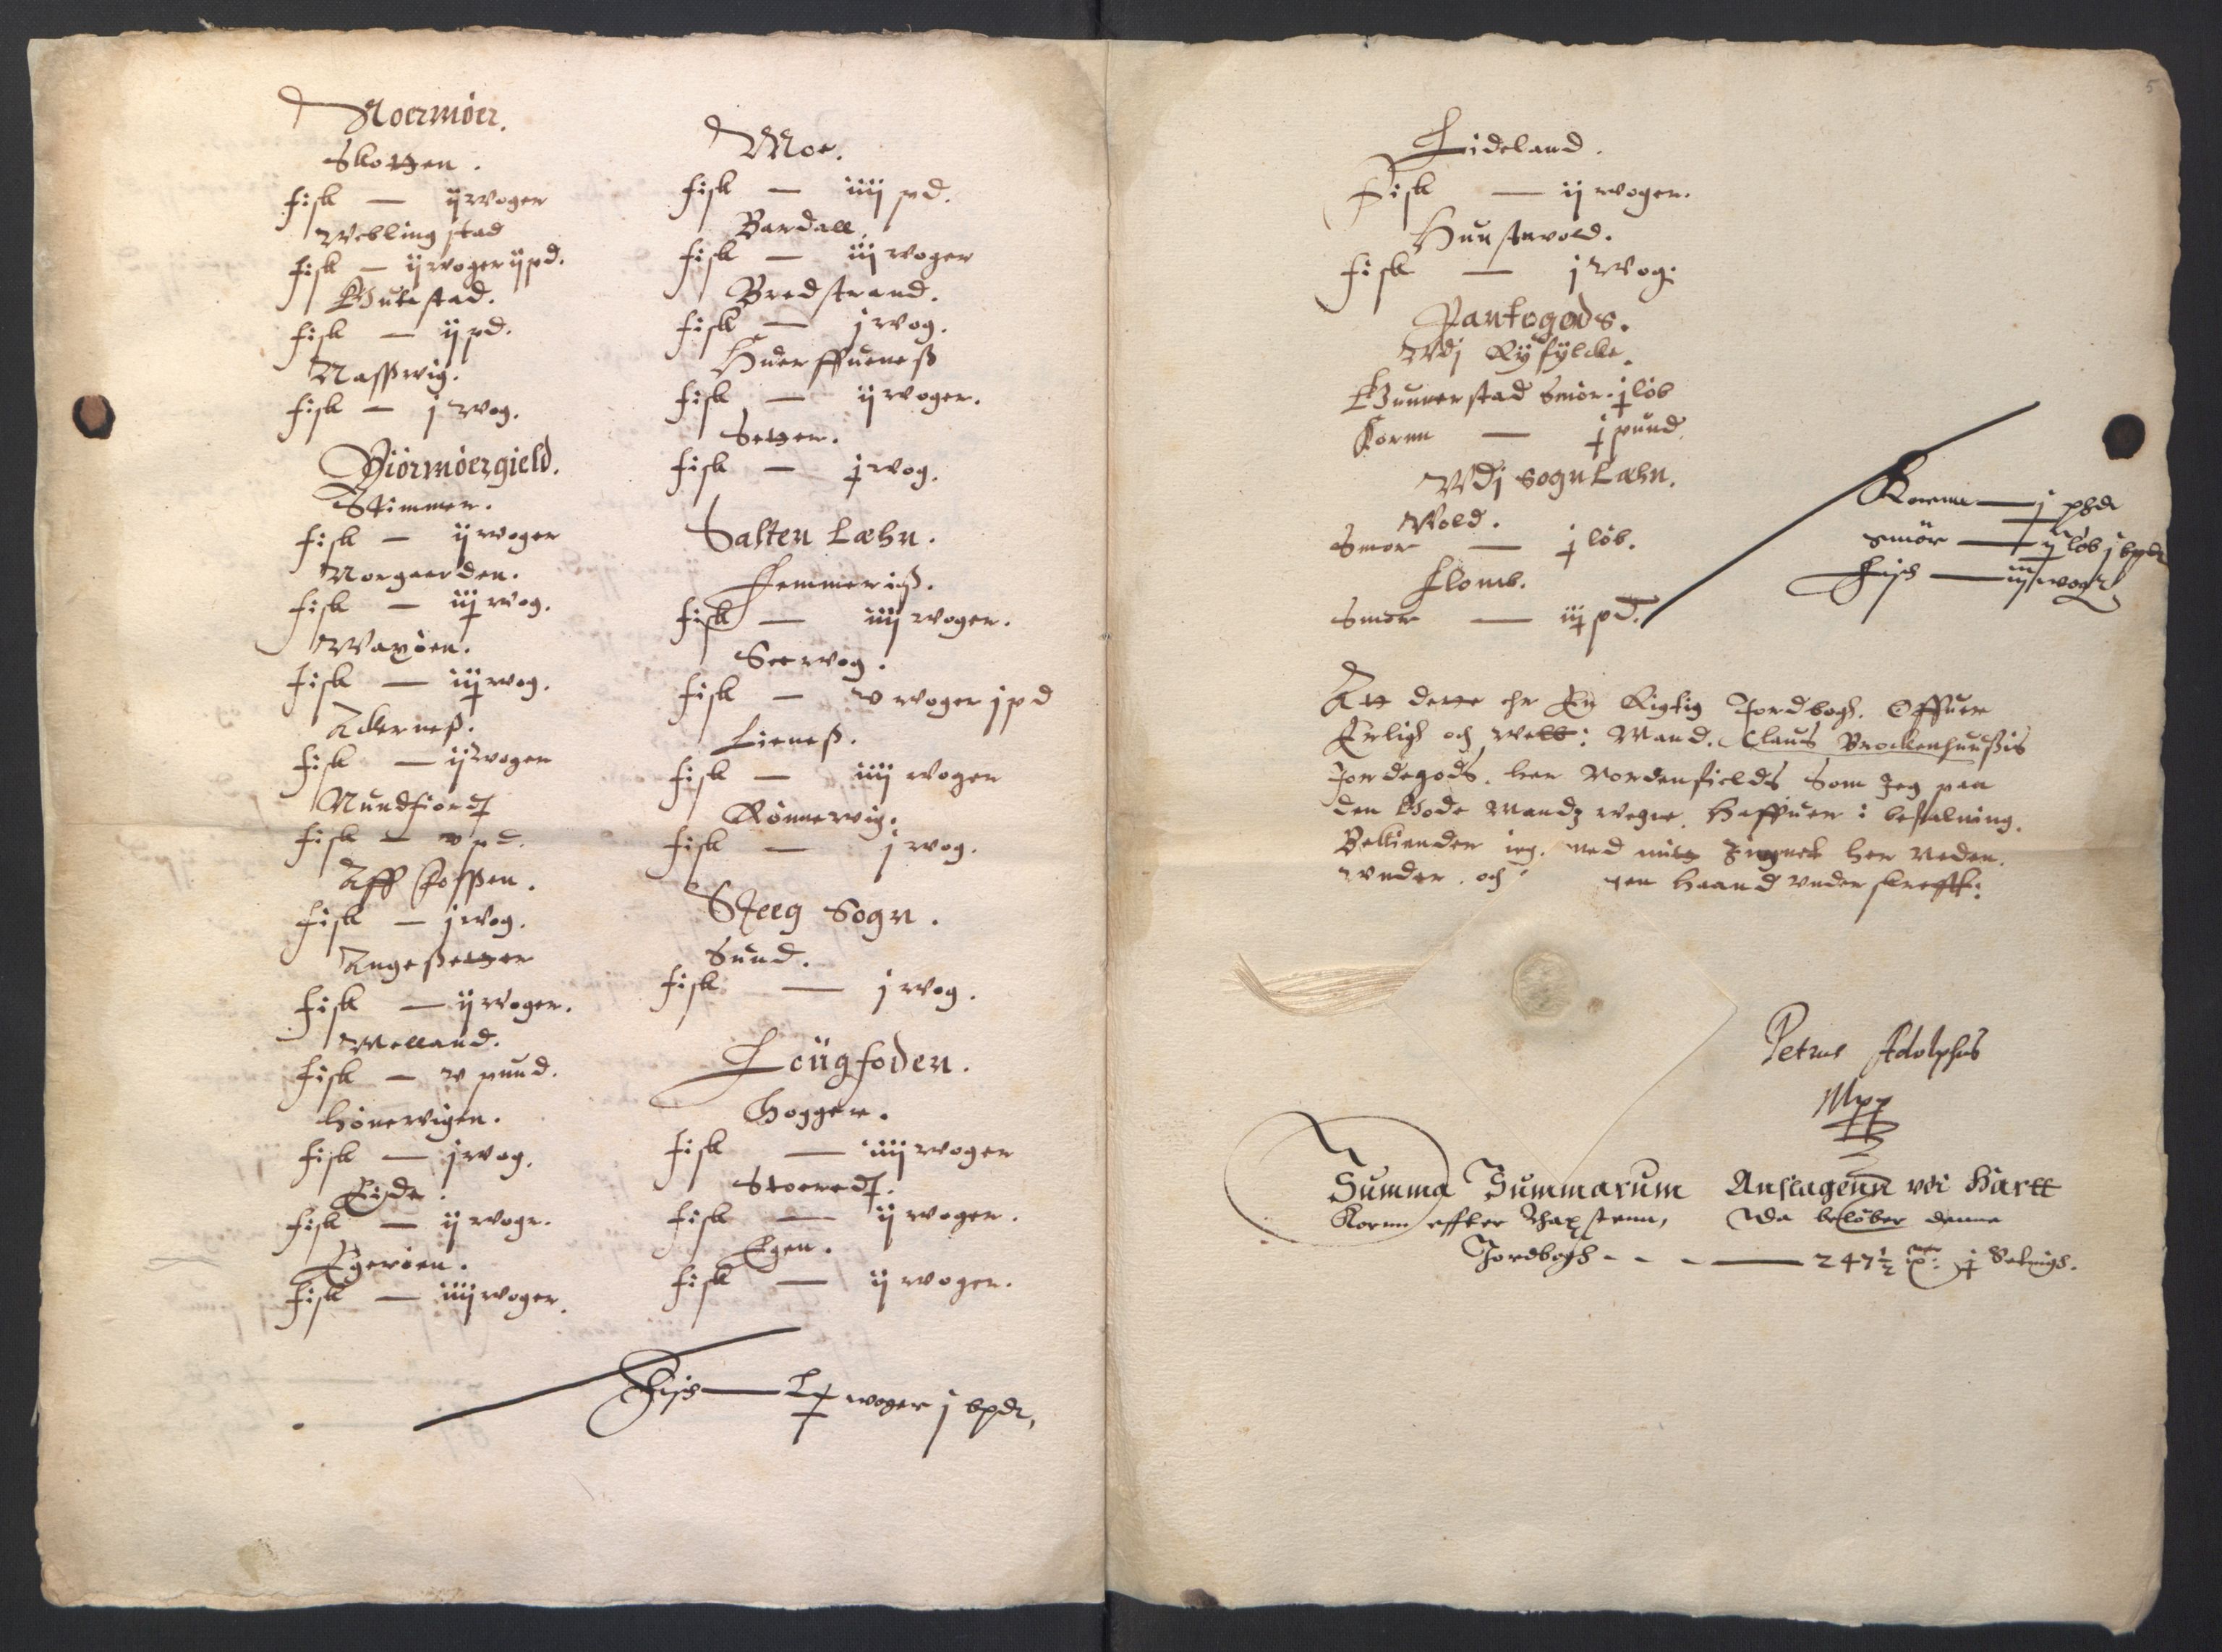 Noermöer.
Skotzen.
fisk — ij woger
Weblingstad
fisk — ij woger ij pd.
Gulestad.
fisk — ij pd.
Nasswig.
fisk — j wog.
Giörmöergield.
Stimmer.
fisk — ij woger
Norgaerden.
fisk — iij wog.
Waxöen.
fisk — iij wog.
Ackerneß.
fisk — ij woger
Mundfiordt
fisk — v pd.
Aff Fossen.
fisk — j wog.
Angeßetzer
fisk — ij woger.
Melland.
fisk — v pund.
Hönerwigen.
fisk — j wog.
Eyde.
fisk — ij woger.
Egeröen.
fisk — iiij woger.
Moe.
fisk — iiij pd.
Bardall.
fisk — iij woger
Bredstrand.
fisk — j wog.
Huerffueneß
fisk — ij woger.
Setzer.
fisk — j wog.
Salten Læhn.
Femmeriß.
fisk — iiij woger.
Seerwog.
fisk — v woger j pd
Lieneß.
fisk — iiij woger
Rönnerwig.
fisk — j wog.
Steeg Sogn.
Sund.
fisk — j wog.
Loügfoden.
Hoggen.
fisk — iiij woger
Stoeredt.
fisk — ij woger.
Egen.
fisk — ij woger.
Fisch — woger j bpdt,
5
Lideland.
Fisk — ij woger.
Huustwold.
fisk — j wog:
Pantegods.
Wdj Ryfylcke.
Gunnerstad Smör. j löb
Kornn — j pund.
Wdj Sogn Læhn.
Wold.
Smör — j löb.
Flomb.
Smör — iij pd.
Kornn — j pdt
Smör — ij löb j bpdt
Fisch — iij wogr
Att dette ehr En Rigtig Jordbogh. Offuer
Erligh och Welb: Mand. Claus Brockenhuußis
Jordegods. her Nordenfields, Som Jeg paa
den Gode Mandz wegne. Haffuer i befalning.
Bekiender ieg. med mitt Zignet her neden.
under. och gen Haand underskrefft:
Petrus Adolphus
Mpp
Summa Summarum Anslagenn udi Hartt
Kornn effter thaxstenn, Da belöber denne
Jordbogh - - - — 247½ j Setingh.